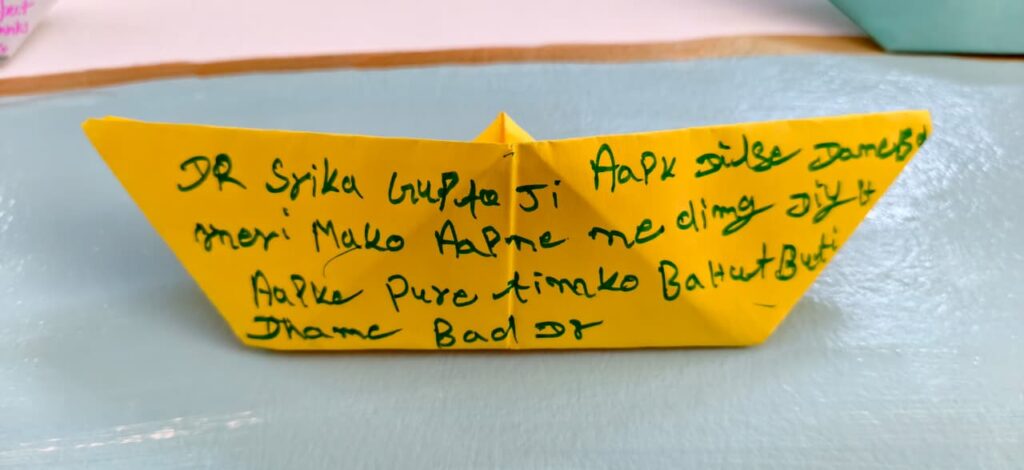 ject
anks
DR Srika Gupta Ji Aapk Dilse Dame Ba
meri Mako Aapne me dimg Diy
Aapke Pure timko Bahut Buti
Dhame Bad Dr